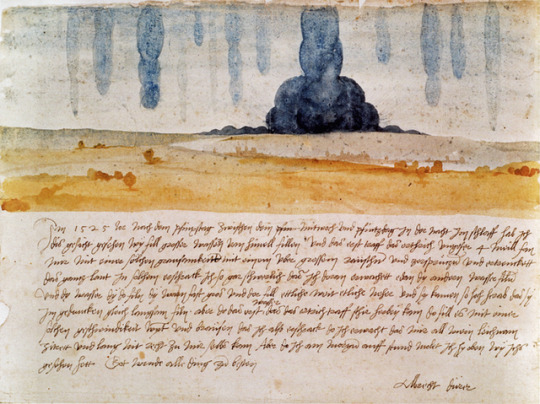 Im 1525 Jor nach dem pfinxstag zwischen dem mitwoch und pfintzdag in der nacht im schlaff hab ich
dis gesicht gesehen wy fill grosser wassern vom himell fillen Und das erst traff das erthrich ungefer 4 meill fan
mir mit einer solchen grausamkeitt mit einem uber grossem raüschn und zersprützn und ertrenckett
das gannz lant In solchem erschrack ich so gar schwerlich das ich doran erwachett edan dy andern wasser filn
Und dy wasser dy do filn dy warn fast gros und der fill ettliche weit ettliche neher und sy kamen so hoch herab das sy
im gedancken gleich langsam filn. aber do das erst wasser das das ertrich traff schir herbey kam do fill es mit einer
solchen geschwindikeit wynt und braüsen das ich also erschrack do ich erwacht das mir all mein leichnam
zitrett und lang nit recht zu mir selbs kam Aber do ich am morgn auff stund molet ich hy oben wy ichs
gesehen hett Got wende alle ding zu besten
Albrecht dürer